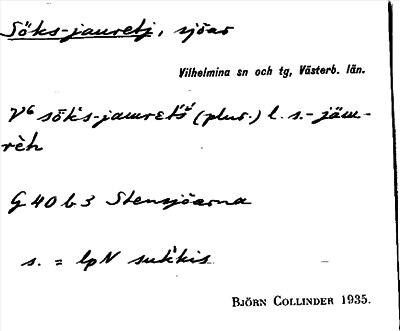 Söks-jauretj, sjöar
Vilhelmina sn och tg, Västerb. län.
V6 sȫks-jaurets (plur.) l. s.-jäu-
rèh
G 40 b 3 Stensjöarna
s. = lpN sukkis
BJÖRN COLLINDER 1935.